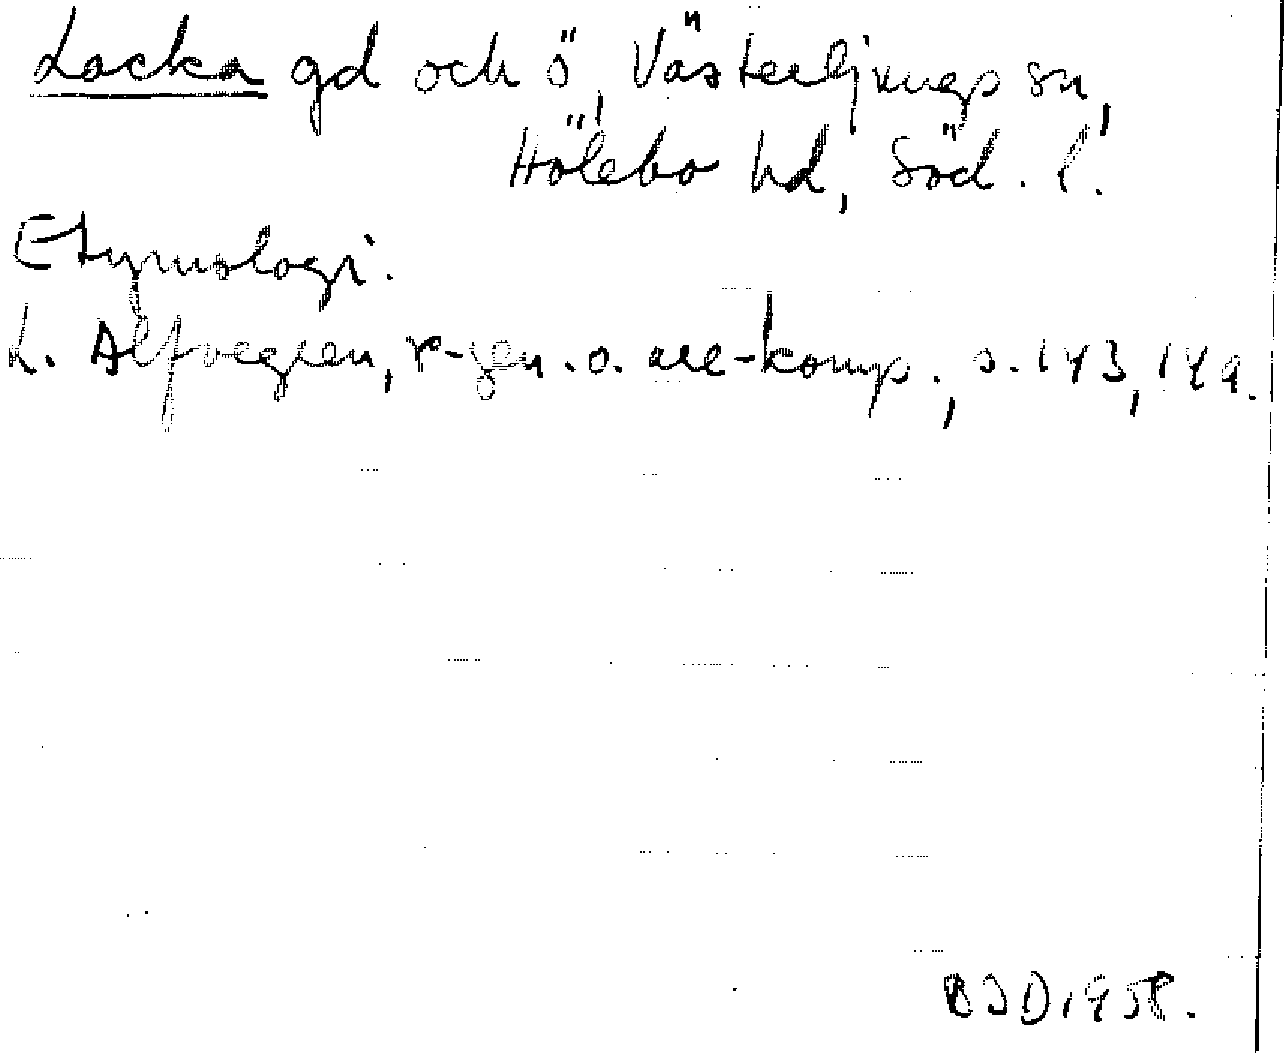 Lacka gd och ö, Västerljungs sn,
Hölebo hd, Söd. l.
Etymologi.
L. Alfvegren, r-gen. o. are-komp., s. 143, 149.
BJD 1958.